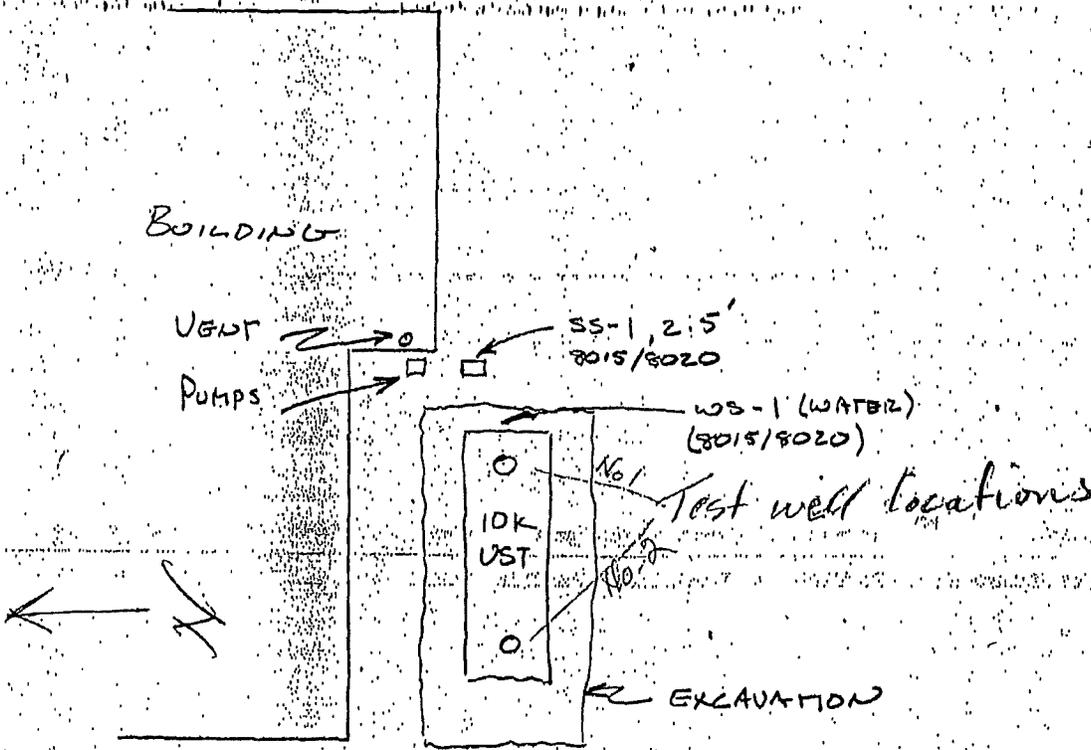 BUILDING
VENT
PUMPS
SS-1, 2.5'
8015/8020
WS-1 (WATER)
(8015/8020)
No 1
Test well locations
No-2
10K
UST
N
EXCAVATION